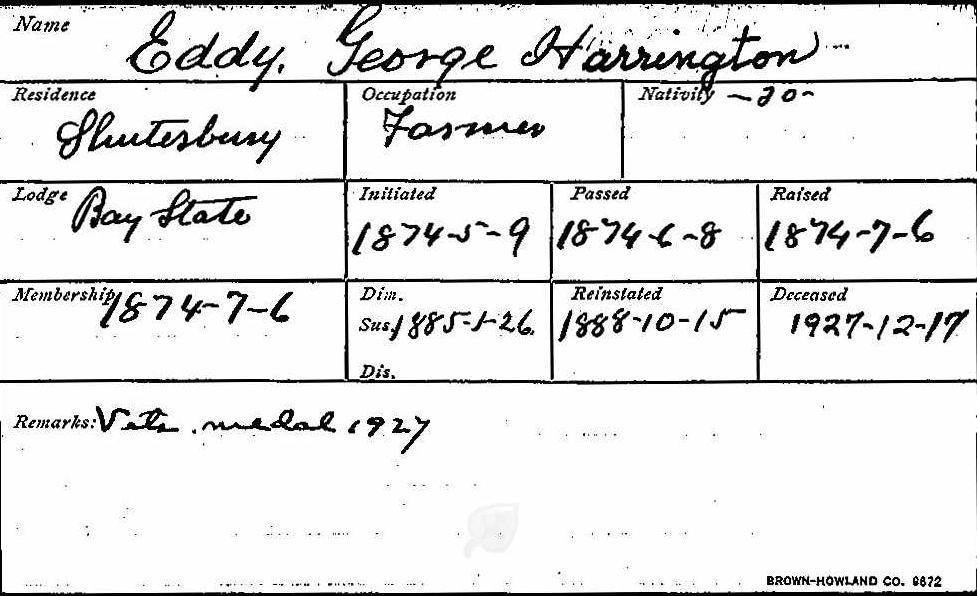 Name Eddy, George Harrington
Residence Occupation Nativity -20-
Shutesbury Farmer
Lodge Bay State Initiated Passed Raised
1874-5-9 1874-6-8 1874-7-6
Membership 1874-7-6 Dim. Reinstated Deceased
Sus. 1885-1-26 1888-10-15 1927-12-17
Dis.
Remarks: Vets. medal 1927
BROWN-HOWLAND CO. 6672